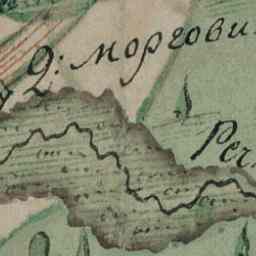 Д: моргови
Реч